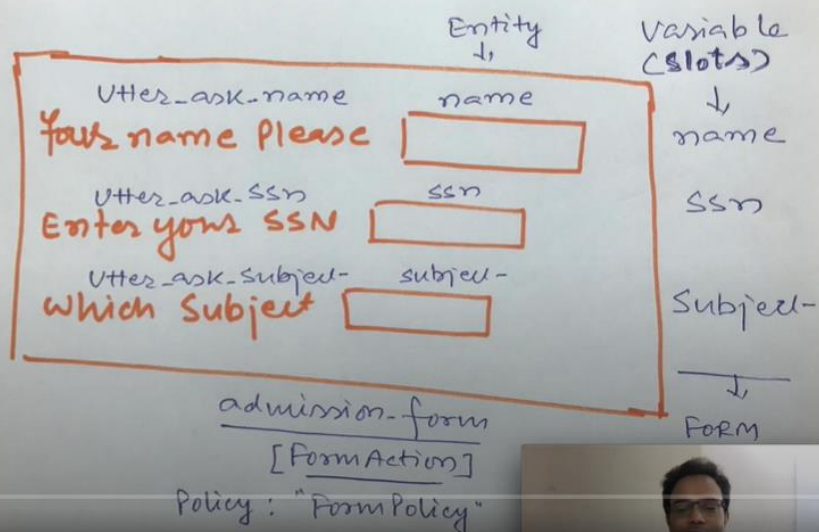 Entity
Variable
(Slots)
Utter_ask_name
name
Your name Please
name
Utter_ask_SSn
ssn
SSn
Enter your SSN
Utter_ask_Subject
subject
Which Subject
Subject
admission_form
FORM
[FormAction]
Policy : "FormPolicy"